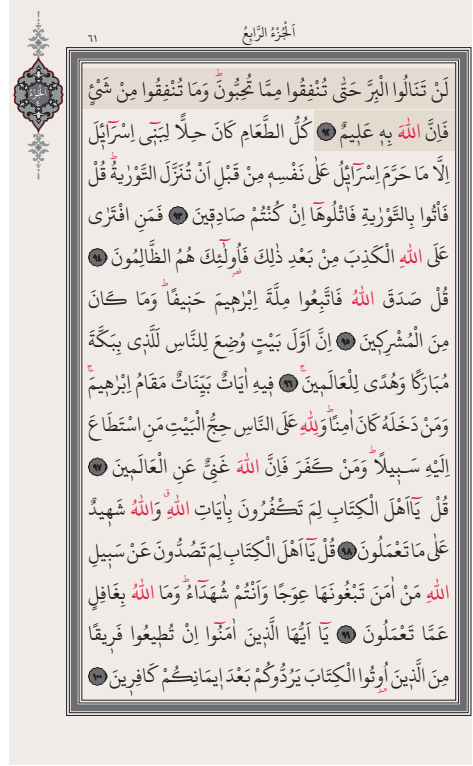 اَلْجُزْءُ الرَّابِعُ
٦١
لَنْ تَنَالُوا الْبِرَّ حَتّٰى تُنْفِقُوا مِمَّا تُحِبُّونَۜ وَمَا تُنْفِقُوا مِنْ شَيْءٍ
فَاِنَّ اللّٰهَ بِهٖ عَلِيمٌ ﴿٩٢﴾ كُلُّ الطَّعَامِ كَانَ حِلًّا لِبَنٖٓى اِسْرَٓائٖلَ
اِلَّا مَا حَرَّمَ اِسْرَٓائٖلُ عَلٰى نَفْسِهٖ مِنْ قَبْلِ اَنْ تُنَزَّلَ التَّوْرٰيةُۜ قُلْ
فَأْتُوا بِالتَّوْرٰيةِ فَاتْلُوهَٓا اِنْ كُنْتُمْ صَادِقٖينَ ﴿٩٣﴾ فَمَنِ افْتَرٰى
عَلَى اللّٰهِ الْكَذِبَ مِنْ بَعْدِ ذٰلِكَ فَاُولٰٓئِكَ هُمُ الظَّالِمُونَ ﴿٩٤﴾
قُلْ صَدَقَ اللّٰهُ فَاتَّبِعُوا مِلَّةَ اِبْرٰهٖيمَ حَنٖيفًاۜ وَمَا كَانَ
مِنَ الْمُشْرِكٖينَ ﴿٩٥﴾ اِنَّ اَوَّلَ بَيْتٍ وُضِعَ لِلنَّاسِ لَلَّذٖى بِبَكَّةَ
مُبَارَكًا وَهُدًى لِلْعَالَمٖينَۚ ﴿٩٦﴾ فٖيهِ اٰيَاتٌ بَيِّنَاتٌ مَقَامُ اِبْرٰهٖيمَۚ
وَمَنْ دَخَلَهُ كَانَ اٰمِنًاۜ وَلِلّٰهِ عَلَى النَّاسِ حِجُّ الْبَيْتِ مَنِ اسْتَطَاعَ
اِلَيْهِ سَبٖيلًاۜ وَمَنْ كَفَرَ فَاِنَّ اللّٰهَ غَنِىٌّ عَنِ الْعَالَمٖينَ ﴿٩٧﴾
قُلْ يَٓا اَهْلَ الْكِتَابِ لِمَ تَكْفُرُونَ بِاٰيَاتِ اللّٰهِۗ وَاللّٰهُ شَهٖيدٌ
عَلٰى مَا تَعْمَلُونَ ﴿٩٨﴾ قُلْ يَٓا اَهْلَ الْكِتَابِ لِمَ تَصُدُّونَ عَنْ سَبٖيلِ
اللّٰهِ مَنْ اٰمَنَ تَبْغُونَهَا عِوَجًا وَاَنْتُمْ شُهَدَٓاءُۜ وَمَا اللّٰهُ بِغَافِلٍ
عَمَّا تَعْمَلُونَ ﴿٩٩﴾ يَٓا اَيُّهَا الَّذٖينَ اٰمَنُٓوا اِنْ تُطٖيعُوا فَرٖيقًا
مِنَ الَّذٖينَ اُو۫تُوا الْكِتَابَ يَرُدُّوكُمْ بَعْدَ اٖيمَانِكُمْ كَافِرٖينَ ﴿١٠٠﴾